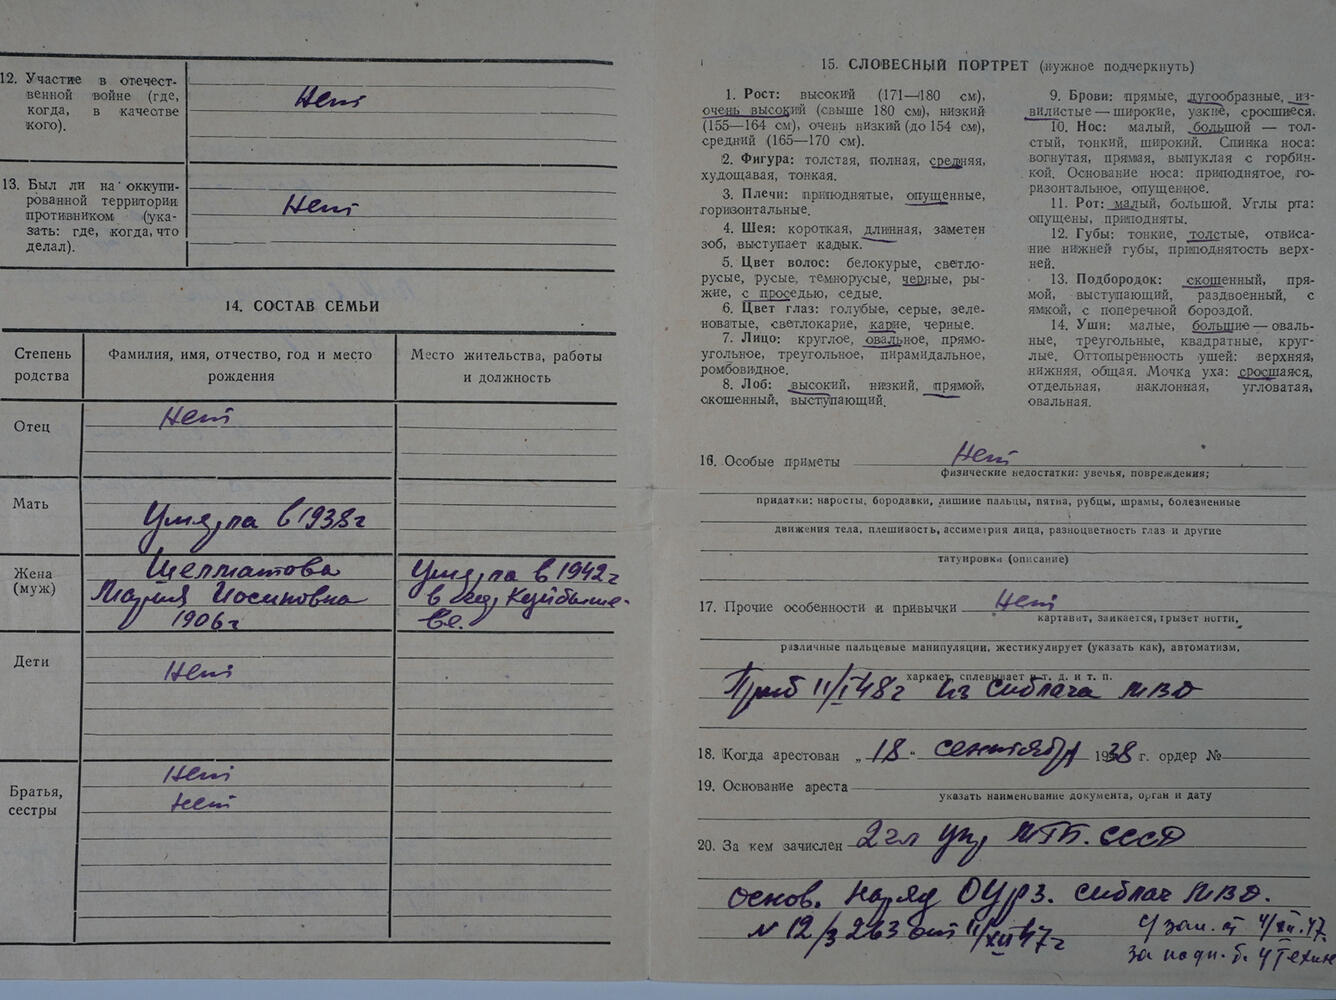 12. Участие в отечест-
венной войне (где,
когда, в качестве
кого).
Нет
13. Был ли на оккупи-
рованной территории
противником (ука-
зать: где, когда, что
делал).
Нет
14. СОСТАВ СЕМЬИ
Степень
родства
Фамилия, имя, отчество, год и место
рождения
Место жительства, работы
и должность
Отец
Нет
Мать
Умерла в 1938 г
Жена
(муж)
Шелматова
Мария Иосиповна
1906 г
Умерла в 1942 г
в гор. Куйбыше-
ве.
Дети
Нет
Братья,
сестры
Нет
Нет
15. СЛОВЕСНЫЙ ПОРТРЕТ (нужное подчеркнуть)
1. Рост: высокий (171—180 см),
очень высокий (свыше 180 см), низкий
(155—164 см), очень низкий (до 154 см),
средний (165—170 см).
2. Фигура: толстая, полная, средняя,
худощавая, тонкая.
3. Плечи: приподнятые, опущенные,
горизонтальные.
4. Шея: короткая, длинная, заметен
зоб, выступает кадык.
5. Цвет волос: белокурые, светло-
русые, русые, темнорусые, черные, ры-
жие, с проседью, седые.
6. Цвет глаз: голубые, серые, зеле-
новатые, светлокарие, карие, черные.
7. Лицо: круглое, овальное, прямо-
угольное, треугольное, пирамидальное,
ромбовидное.
8. Лоб: высокий, низкий, прямой,
скошенный, выступающий.
9. Брови: прямые, дугообразные, из-
вилистые — широкие, узкие, сросшиеся.
10. Нос: малый, большой — тол-
стый, тонкий, широкий. Спинка носа:
вогнутая, прямая, выпуклая с горбин-
кой. Основание носа: приподнятое, го-
ризонтальное, опущенное.
11. Рот: малый, большой. Углы рта:
опущены, приподняты.
12. Губы: тонкие, толстые, отвиса-
ние нижней губы, приподнятость верх-
ней.
13. Подбородок: скошенный, пря-
мой, выступающий, раздвоенный, с
ямкой, с поперечной бороздой.
14. Уши: малые, большие — оваль-
ные, треугольные, квадратные, круг-
лые. Оттопыренность ушей: верхняя,
нижняя, общая. Мочка уха: сросшаяся,
отдельная, наклонная, угловатая,
овальная.
16. Особые приметы Нет
физические недостатки: увечья, повреждения;
придатки: наросты, бородавки, лишние пальцы, пятна, рубцы, шрамы, болезненные
движения тела, плешивость, ассиметрия лица, разноцветность глаз и другие
татуировки (описание)
17. Прочие особенности и привычки Нет
картавит, заикается, грызет ногти,
различные пальцевые манипуляции, жестикулирует (указать как), автоматизм,
харкает, сплевывает и т. д. и т. п.
Приб 11/I 48 г из Сиблага МВД
18. Когда арестован „18" сентября 1938 г. ордер №
19. Основание ареста
указать наименование документа, орган и дату
20. За кем зачислен 2 гл упр МГБ. СССР
Основ. Наряд ОУРЗ. Сиблаг МВД.
№ 12/3 263 от 11/XII 47 г
4/XII.47